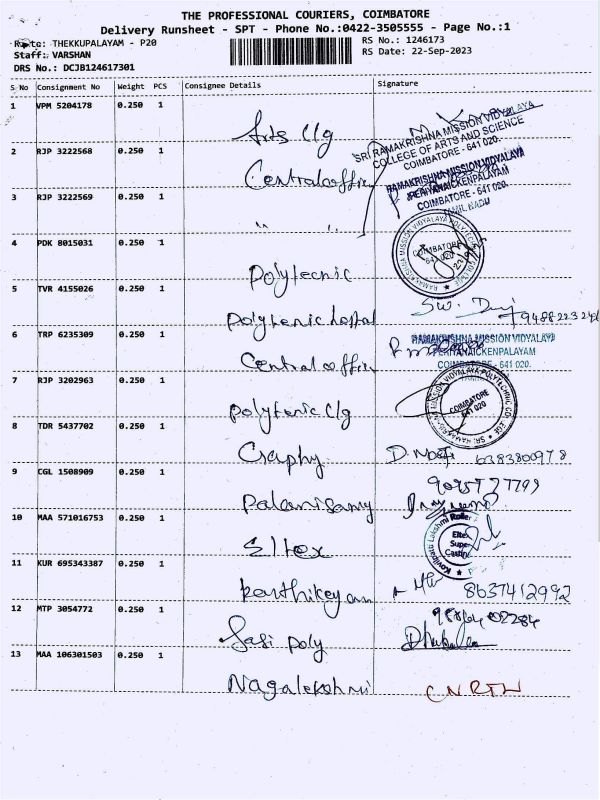 THE PROFESSIONAL COURIERS, COIMBATORE
Delivery Runsheet - SPT - Phone No.:0422-3505555 - Page No.:1
Route: THEKKUPALAYAM - P20
RS No.: 1246173
Staff: VARSHAN
RS Date: 22-Sep-2023
DRS No.: DCJB124617301
S No Consignment No Weight PCS Consignee Details Signature
1 VPM 5204178 0.250 1
Arts Clg
SRI RAMAKRISHNA MISSION VIDYALAYA
COLLEGE OF ARTS AND SCIENCE
COIMBATORE - 641 020.
2 RJP 3222568 0.250 1
Central offin
RAMAKRISHNA MISSION VIDYALAYA
PERIYANAICKENPALAYAM
COIMBATORE - 641 020.
TAMIL NADU
3 RJP 3222569 0.250 1
" "
RAMAKRISHNA MISSION VIDYALAYA POLYTECHNIC COLLEGE
COIMBATORE
641 020
4 PDK 8015031 0.250 1
Polytecnic
5 TVR 4155026 0.250 1
Polytenic hostal
6 TRP 6235309 0.250 1
Central offin
RAMAKRISHNA MISSION VIDYALAYA
PERIYANAICKENPALAYAM
COIMBATORE - 641 020.
7 RJP 3202963 0.250 1
Polytenic Clg
SRI RAMAKRISHNA MISSION VIDYALAYA POLYTECHNIC COLLEGE
COIMBATORE
641 020
8 TDR 5437702 0.250 1
Craphy
6383800978
9 CGL 1508909 0.250 1
Palanisamy
10 MAA 571016753 0.250 1
Eltex
Kovilpatti Lakshmi Roller
Eltex
Super
Casting
11 KUR 695343387 0.250 1
Karthikeyan
8637412992
12 MTP 3054772 0.250 1
Sasi Poly
13 MAA 106301503 0.250 1
Nagalekshmi
CNRTN